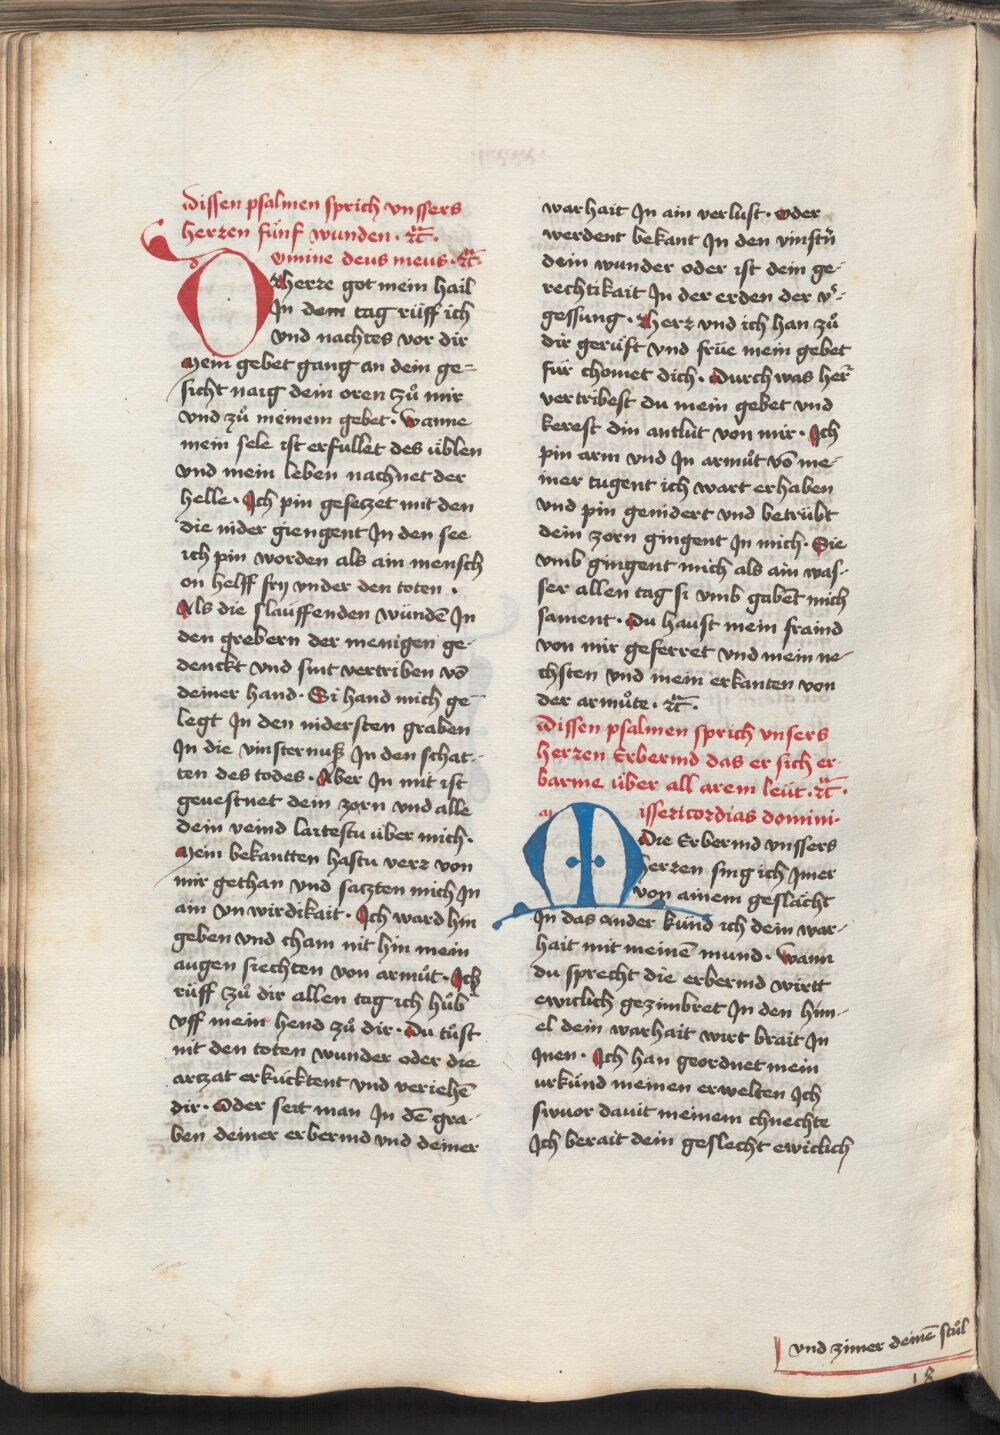 dissen psalmen sprich vnssers
herren fúnf wunden · ꝛc̄ ·
Domine deus meus · ꝛc̄ ·
Herre got mein hail
Jn dem tag rúff ich
vnd nachtes vor dir
Mein gebet gang an dem ge-
sicht naig dein oren zů mir
vnd zů meinem gebet · wanne
mein sele ist erfullet des úblen
vnd mein leben nachnet der
helle · Jch pin gesetzet mit den
die nider giengent Jn den see
ich pin worden als ain mensch
on helff fry vnder den toten ·
Als die slauffenden wúndē Jn
den grebern der menigen ge-
denckt vnd sint vertriben vō
deiner hand · Si hand mich ge-
legt Jn den nidersten graben
Jn die vinsternuß Jn den schat-
ten des todes · Aber Jn mit ist
geuestnet dein zorn vnd alle
dein veind laitestu úber mich ·
Mein bekantten hastu verr von
mir gethan vnd satzten mich Jn
ain vnwirdikait · Jch ward hin
geben vnd cham nit hin mein
augen siechten von armůt · Jch
rúff zů dir allen tag ich hůb
vff mein hend zů dir · Du tůst
nit den toten wunder oder die
artzat erkúcktent vnd veriehē
dir · Oder seit man Jn dē gra-
ben deiner erbermd vnd deiner
warhait Jn ain verlust · Oder
werdent bekant Jn den vinstn̄
dein wunder oder ist dein ge-
rechtikait Jn der erden der v͛-
gessung · Herr vnd ich han zů
dir gerúft vnd frúe mein gebet
fúr chomet dich · Durch was her̄
vertribest du mein gebet vnd
kerest din antlut von mir · Jch
pin arm vnd Jn armůt vō me-
iner tugent ich wart erhaben
vnd pin genidert vnd betrúbt
dein zorn gingent Jn mich · Sie
vmb gingent mich als ain was-
ser allen tag si vmb gabēt mich
sament · Du haust mein fraind
von mir geferret vnd mein ne-
chsten vnd mein erkanten von
der armůte · ꝛc̄ ·
Dissen psalmen sprich vnsers
herren Erbermd das er sich er-
barme úber all arem leút · ꝛc̄ ·
Missericordias domini ·
Die Erbermd vnssers
herren sing ich Jmer
von ainem geslácht
Jn das ander kúnd ich dein war-
hait mit meinē mund · wann
du sprecht die erbermd wirtt
ewiclich gezimbret Jn den him-
el dein warhait wirt brait Jn
Jnen · Jch han geordnet mein
urkúnd meinen erwelten Jch
swuor dauit meinem chnechte
Jch berait dein geslecht ewiclich
vnd zimer deinē stůl
18